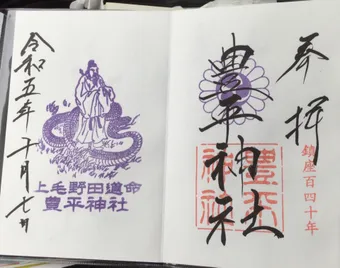 奉拝
鎮座百四十年
豊平神社
豊平
神社
上毛野田道命
豊平神社
令和五年十月七日